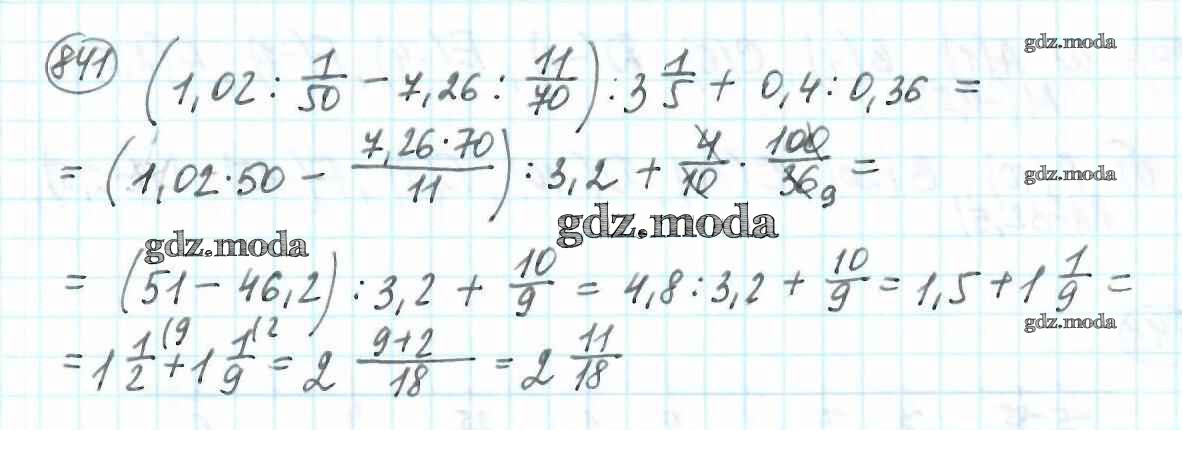 841 (1,02 : 1/50 − 7,26 : 11/70) : 3 1/5 + 0,4 : 0,36 =
gdz.moda
= (1,02·50 − 7,26·70/11) : 3,2 + 4/10 · 100/36 9 =
gdz.moda
gdz.moda
gdz.moda
= (51 − 46,2) : 3,2 + 10/9 = 4,8 : 3,2 + 10/9 = 1,5 + 1 1/9 =
gdz.moda
= 1 1/2 (9 + 1 1/9 (2 = 2 9+2/18 = 2 11/18